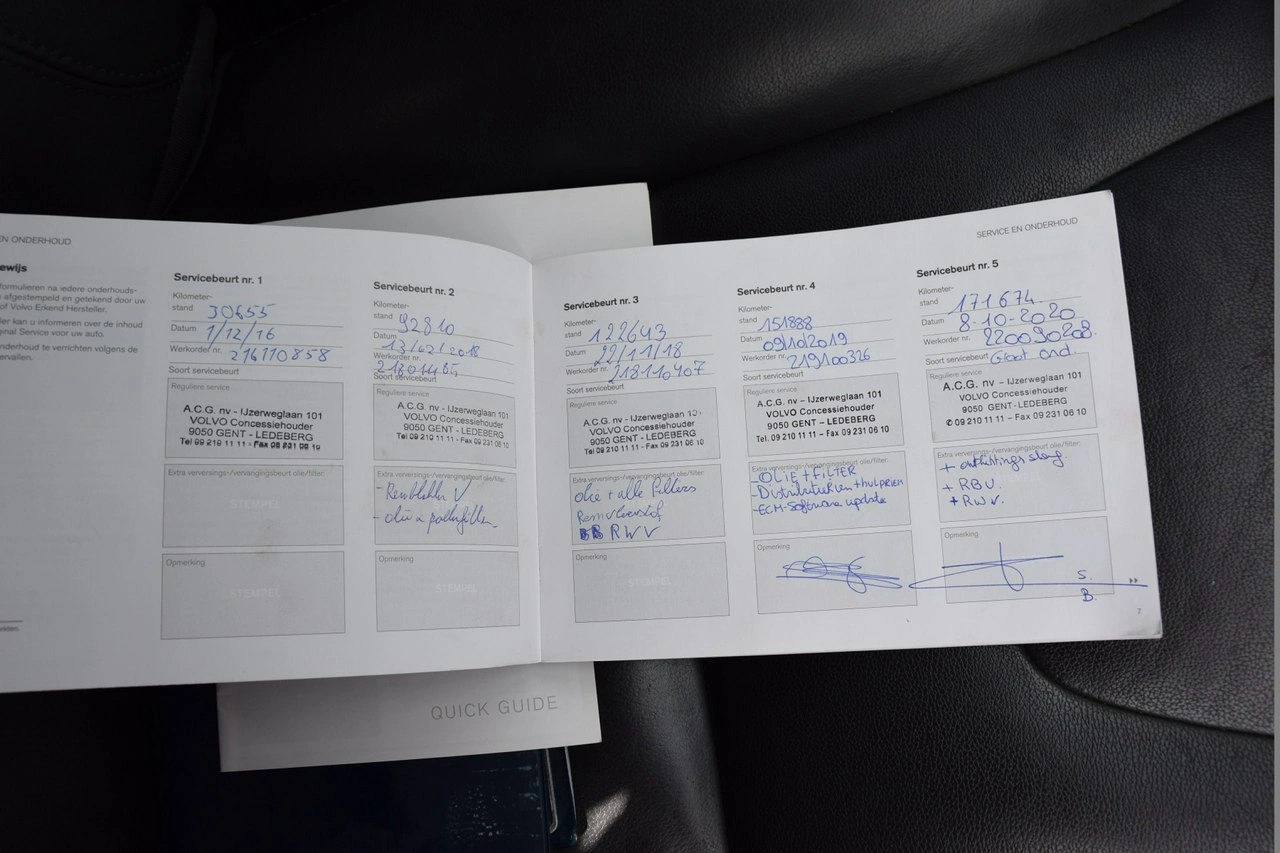 EN ONDERHOUD
ewijs
formulieren na iedere onderhouds-
afgestempeld en getekend door uw
of Volvo Erkend Hersteller.
ler kan u informeren over de inhoud
ginal Service voor uw auto.
nderhoud te verrichten volgens de
ervallen.
Servicebeurt nr. 1
Kilometer-
stand 30655
Datum 1/12/16
Werkorder nr. 216110858
Soort servicebeurt
Reguliere service
A.C.G. nv - IJzerweglaan 101
VOLVO Concessiehouder
9050 GENT - LEDEBERG
Tel 09 210 11 11 - Fax 09 231 06 10
Extra verversings-/vervangingsbeurt olie/filter:
STEMPEL
Opmerking
STEMPEL
Servicebeurt nr. 2
Kilometer-
stand 92810
Datum 13/02/2018
Werkorder nr.
Soort servicebeurt
Reguliere service
A.C.G. nv - IJzerweglaan 101
VOLVO Concessiehouder
9050 GENT - LEDEBERG
Tel 09 210 11 11 - Fax 09 231 06 10
Extra verversings-/vervangingsbeurt olie/filter:
- Remblokken V
- olie + pollenfilter
Opmerking
STEMPEL
SERVICE EN ONDERHOUD
Servicebeurt nr. 3
Kilometer-
stand 122643
Datum 22/11/18
Werkorder nr. 218110407
Soort servicebeurt
Reguliere service
A.C.G. nv - IJzerweglaan 101
VOLVO Concessiehouder
9050 GENT - LEDEBERG
Tel 09 210 11 11 - Fax 09 231 06 10
Extra verversings-/vervangingsbeurt olie/filter:
olie + alle filters
Remvloeistof
RWV
Opmerking
STEMPEL
Servicebeurt nr. 4
Kilometer-
stand 151888
Datum 09/10/2019
Werkorder nr. 219100326
Soort servicebeurt
Reguliere service
A.C.G. nv - IJzerweglaan 101
VOLVO Concessiehouder
9050 GENT - LEDEBERG
Tel. 09 210 11 11 – Fax 09 231 06 10
Extra verversings-/vervangingsbeurt olie/filter:
-OLIE+FILTER
-Distributieriem+hulpriem
-ECM-Software update
Opmerking
Servicebeurt nr. 5
Kilometer-
stand 171674
Datum 8-10-2020
Werkorder nr. 220090208
Soort servicebeurt Groot ond.
Reguliere service
A.C.G. nv – IJzerweglaan 101
VOLVO Concessiehouder
9050 GENT-LEDEBERG
✆ 09 210 11 11 – Fax 09 231 06 10
Extra verversings-/vervangingsbeurt olie/filter:
+ ontluchtings slang.
+ RBV.
+ RWV.
Opmerking
S.
B.
7
QUICK GUIDE